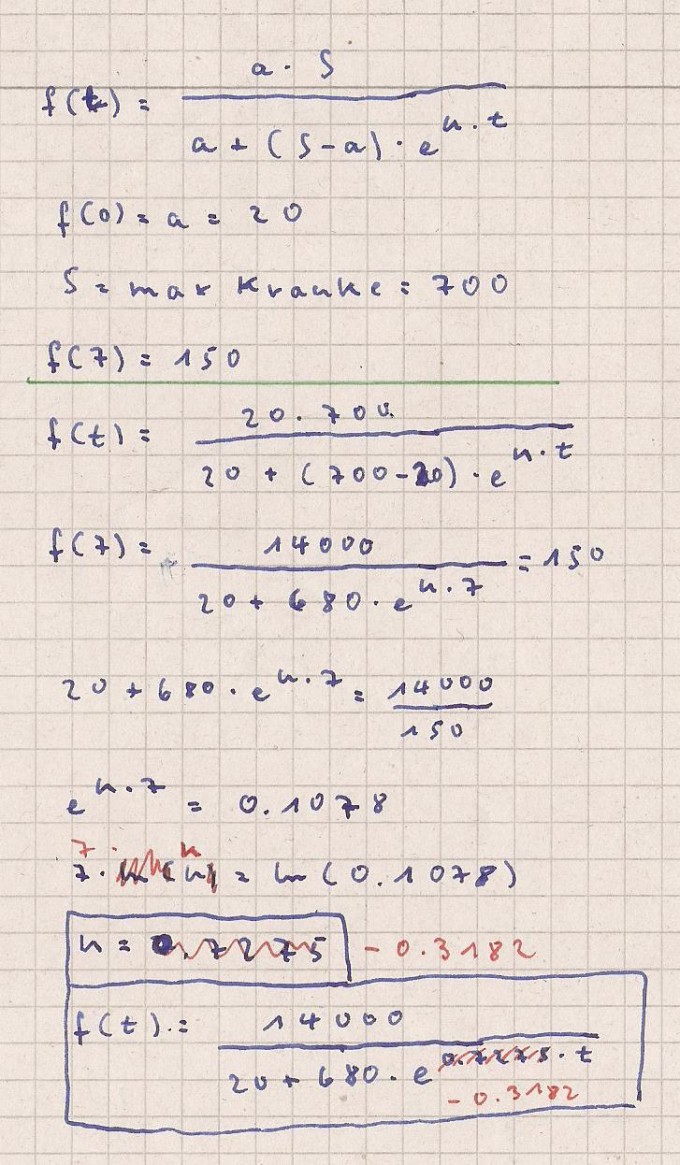 f(t) = a · S / (a + (S-a) · e^(k·t))
f(0) = a = 20
S = max Kranke = 700
f(7) = 150
f(t) = 20 · 700 / (20 + (700-20) · e^(k·t))
f(7) = 14000 / (20 + 680 · e^(k·7)) = 150
20 + 680 · e^(k·7) = 14000 / 150
e^(k·7) = 0.1078
7 · k
7 · = ln(0.1078)
k = 0.7275 - 0.3182
f(t) = 14000 / (20 + 680 · e^(0.7275 · t))
- 0.3182